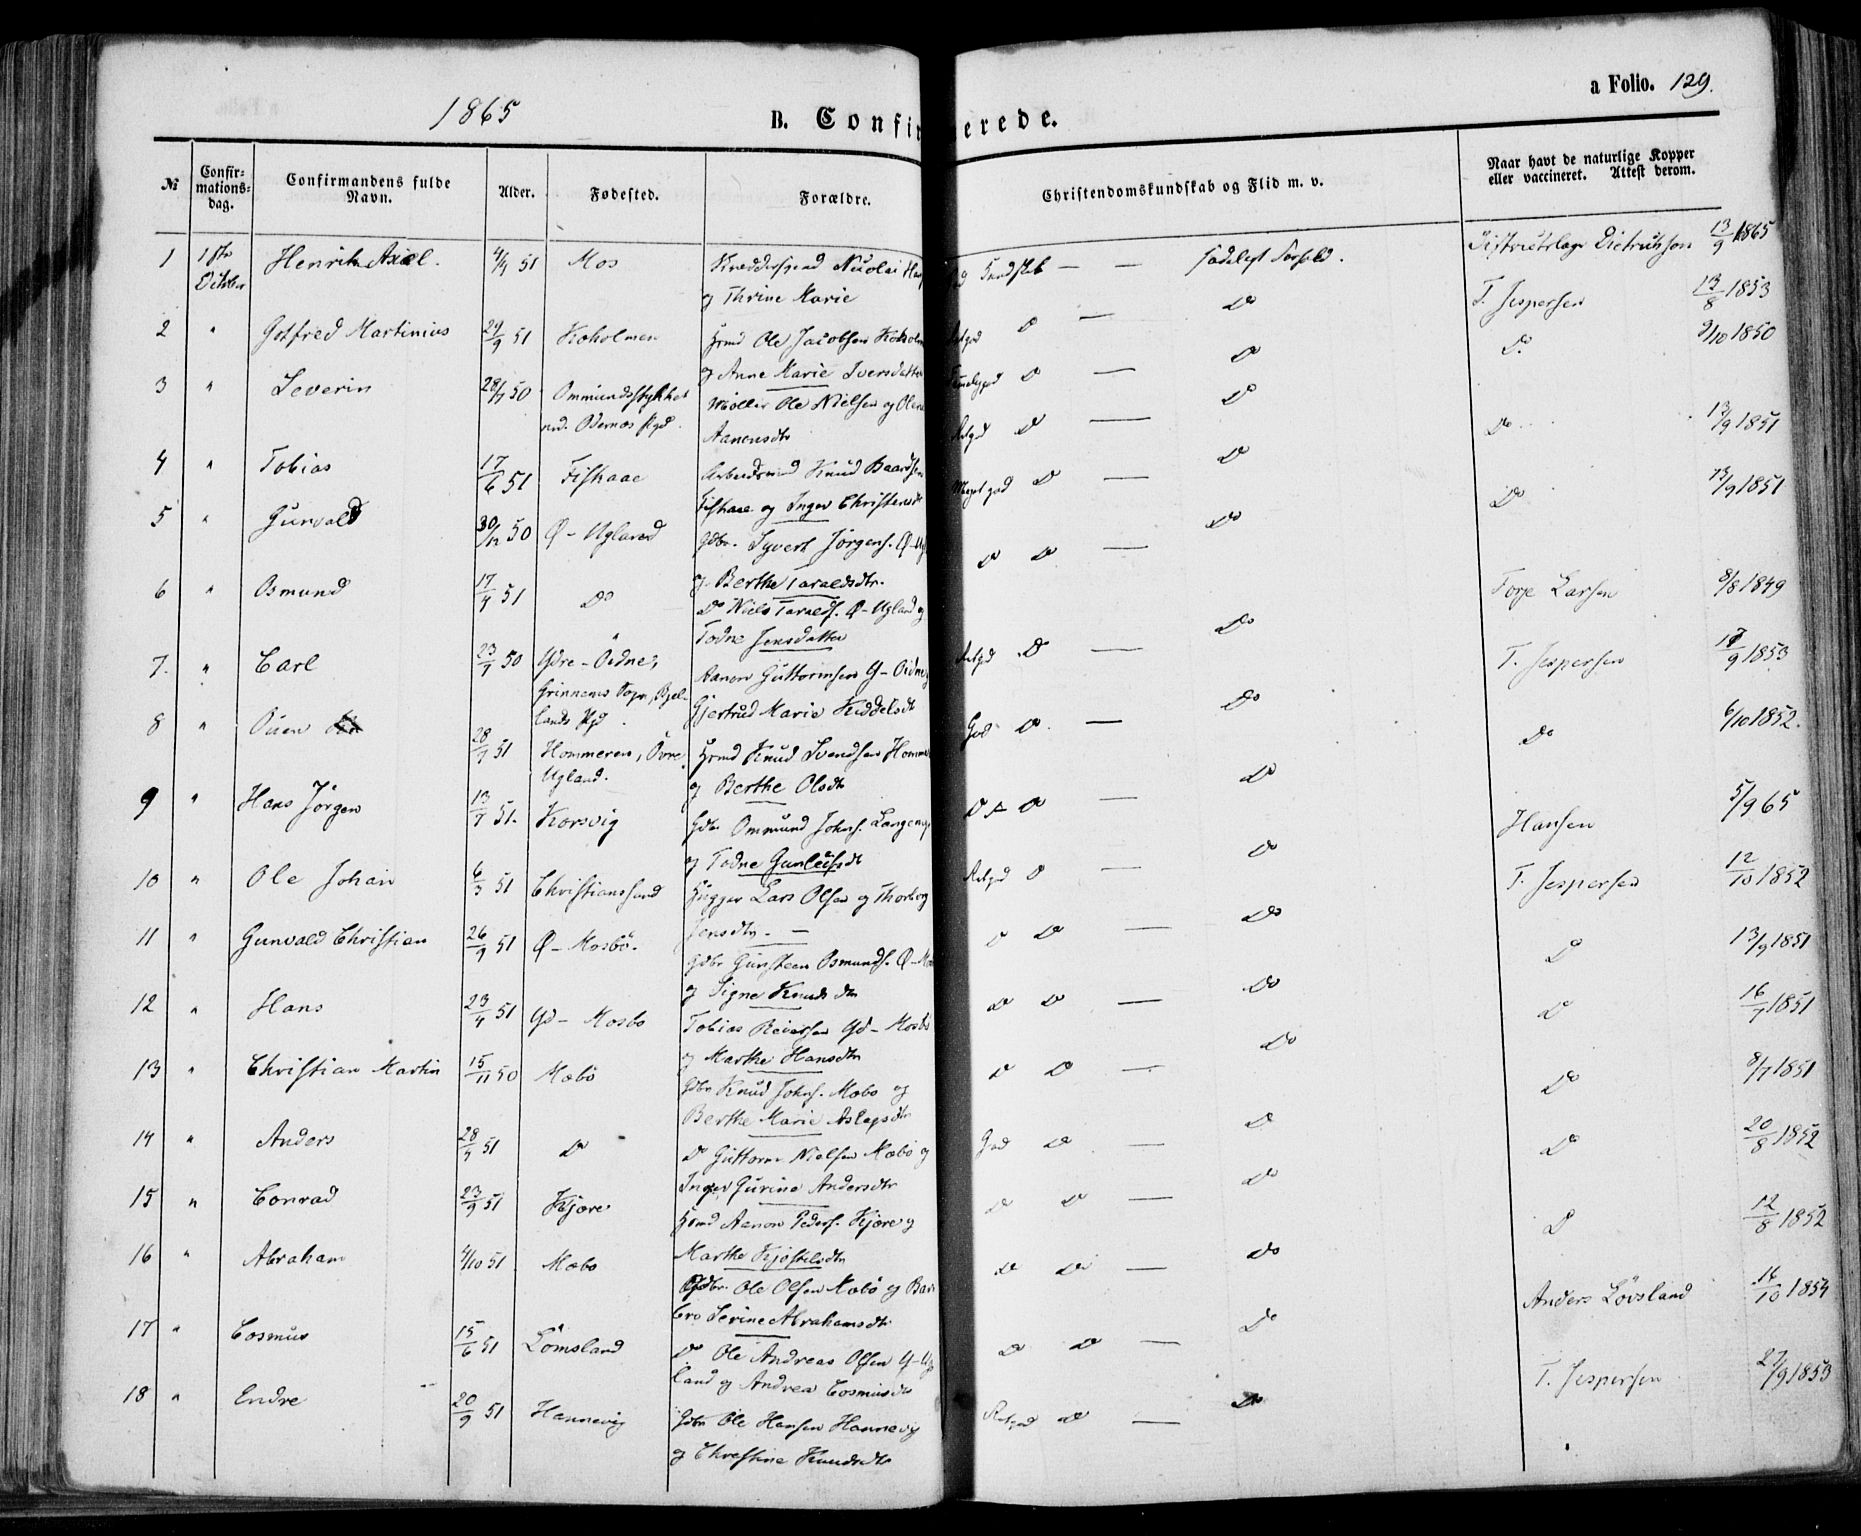 a Folio. 129.
1865
B. Confirmerede.
№
Confirmationsdag.
Confirmandens fulde Navn.
Alder.
Fødested.
Forældre.
Christendomskundskab og Flid m. v.
Naar havt de naturlige Kopper eller vaccineret. Attest derom.
1 1ste October Henrik Axel. 4/4 51 Mos Nicolai
og Thrine Marie
Kundskb — — sædeligt Forhold. Dietrichson 13/9 1865
2 " Gotfred Martinius 29/9 51 Koholmen Hmd Ole Jacobsen Koholm
og Anne Marie Iversdatter
Retgod Do — Do T. Jespersen 13/8 1853
3 " Severin 28/7 50 Ommundsstykket
Møller Ole Nielsen og Olene
und. Odernes Pgd. Aanensdtr
Do — Do Do 9/10 1850
4 " Tobias 17/6 51 Fiskaae Arbeidsmd Knud Baardsen
Fiskaae og Inger Christensdt
Retgd Do — Do Do 13/9 1851
5 " Gunvald 30/12 50 Ø-Ugland Gdbr. Syvert Jørgens. Ø-Ugl
og Berthe Taraldsdtr.
Meget god Do — Do Do 13/9 1851
6 " Osmund 17/4 51 Do Do Niels Taralds. Ø-Ugland og
Todne Jensdatter
Do Do — Do Torje Larsen 8/8 1849
7. " Carl 23/7 50 Ydre-Øidne,
Grinnems Sogn, Bjellands Pgd.
Aanen Guttormsen Y-Øidne
Gjertrud Marie Kiddelsdt
Retgd Do — Do T. Jespersen 17/9 1853
8 " Ouen 28/7 51 Hommeren, Øvre Ugland.
Hmd Knud Svendsen Hommer
og Berthe Olsdt
God Do — Do Do 6/10 1852.
9 " Hans Jørgen 13/7 51. Korsvig Gdbr Ommund Johns. Langeny
og Todne Gunleifsdt
Do Do — Do Hansen 5/9 65
10 " Ole Johan 6/3 51 Christianssand Hugger Lars Olsen og Thorborg
Jensdtr. —
Retgd Do — Do T. Jespersen 12/10 1852
11 " Gunvald Christian 26/9 51 Ø-Mosbø. Gdbr Gunsteen Osmunds. Ø-Mo
og Signe Knudsdtr
Do Do — Do Do 13/9 1851
12 " Hans 23/4 51 Yd-Mosbø Tobias Reiersen Yd-Mosbø
og Marthe Hansdtr
Do Do — Do Do 16/7 1851
13 " Christian Martin 15/11 50 Mæbø Gdbr Knud Johns. Mæbø og
Berthe Marie Aslagsdtr
Do Do — Do Do 8/7 1851
14 " Anders 28/4 51 Do Do Guttorm Nielsen Mæbø og
Inger Gurine Andersdtr
God Do — Do Do 20/8 1852
15 " Conrad 23/9 51 Kjære Hmd Aanon Peders. Kjære og
Marthe Kjøstelsdtr
Do Do — Do Do 12/8 1852
16 " Abraham 4/10 51 Mæbø Gdbr. Ole Olsen Mæbø og Bar
bro Serine Abrahamsdtr
Do Do — Do Anders Løvsland 16/10 1854
17 " Cosmus 15/6 51 Lømsland Do Ole Andreas Olsen Y-Ug
land og Andrea Cosmusdtr
Do Do — Do T. Jespersen 27/9 1853
18 " Endre 20/9 51 Hannevig Gdbr Ole Hansen Hannevig
og Christine Knudsdtr
Retgod Do — Do